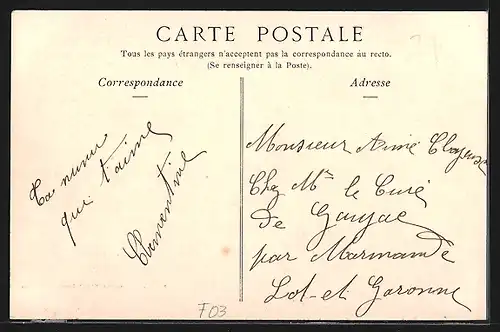 CARTE POSTALE
Tous les pays étrangers n'acceptent pas la correspondance au recto.
(Se renseigner à la Poste).
Correspondance
Adresse
Ta
qui t'aime
Clementine
Monsieur Aimé
Chez Mr le Curé
de Gaujac
par Marmande
Lot-et Garonne
F03